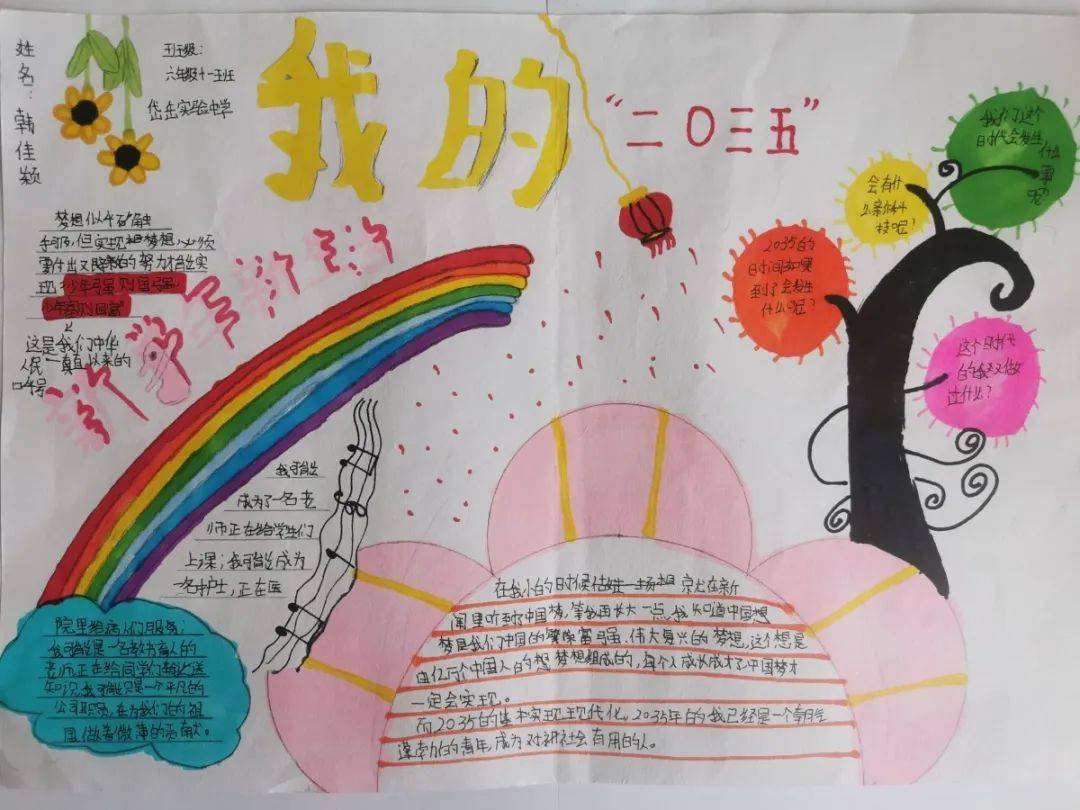 姓名：韩佳颖
班级：
六年级十一班
岱岳实验中学
我的
“二〇三五”
梦想似乎
手可及，但实现梦想，必须
要付出
的努力才能实
现，“少年强则国强，
少年富则国富”
这是我们中华
人民一直以来的
口号
新学号新生活
我们这个
时代会发生
什么
事
呢？
会有什
么新科
技呢？
2035的
时间如果
到了会发生
什么呢？
这个时代
的我又做
过什么？
我可能
成为了一名老
师正在给学生们
上课；我可能成为
一名护士，正在医
院里给病人们服务；
我可能是一名教书育人的
老师正在给同学们
知识，我可能只是一个平凡的
公司职员，在为我们的祖
国做着微薄的贡献。
在我小的时候
就在新
闻里听到了中国梦，等我再长大一点，我知道中国
梦是我们中国的繁荣富强、伟大复兴的梦想，这个想是
由亿万个中国人的想梦想组成的，每个人成长成才了中国梦才
一定会实现。
而2035的基本实现现代化。2035年的我已经是一个朝气
蓬勃的青年，成为对社会有用的人。